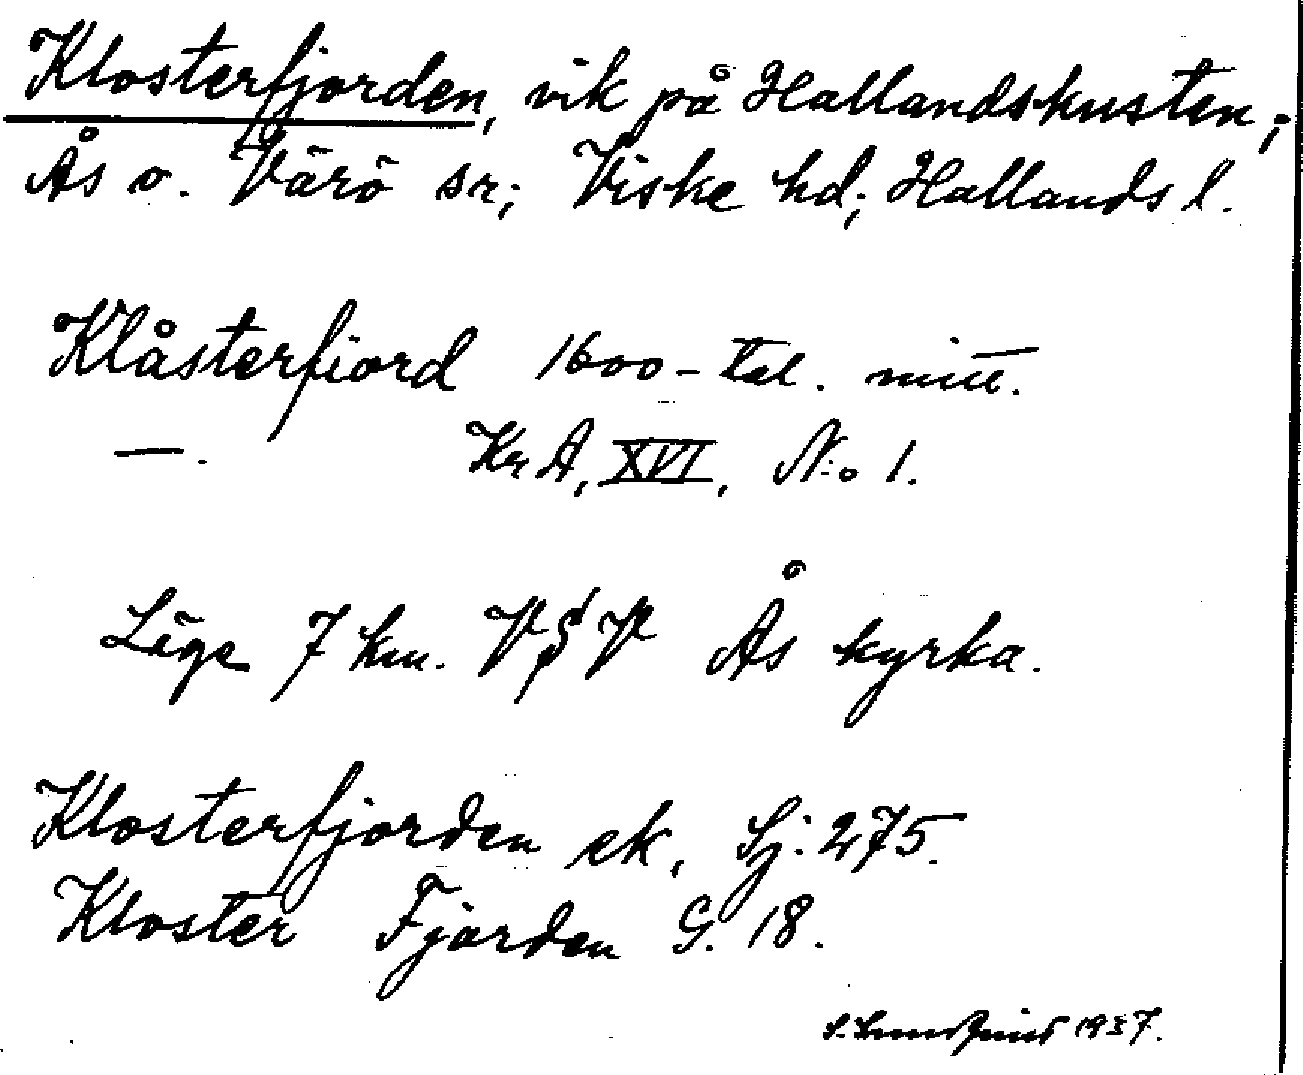 Klosterfjorden, vik på Hallandskusten;
Ås o. Värö sr; Viske hd; Hallands l.
Klåsterfiord 1600-tal. mitt.
—. KrA, XVI, N:o 1.
Läge 7 km. V§V Ås kyrka.
Klosterfjorden ek. Sj: 275.
Kloster Fjorden G. 18.
S. Lundqvist 1937.